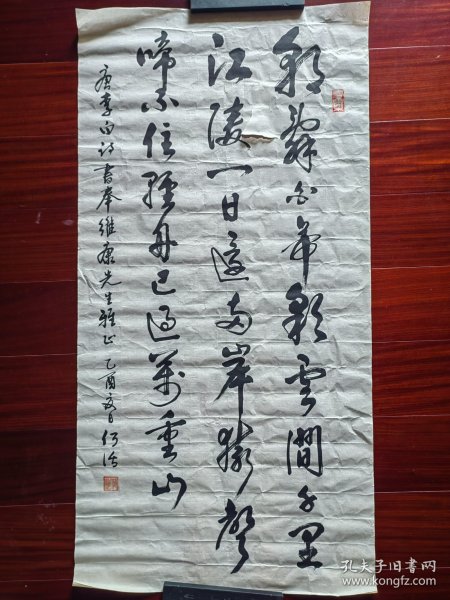 朝辞白帝彩云間千里
江陵一日還两岸猿聲
啼不住輕舟已過萬重山
唐李白詩書奉維康先生雅正 乙酉
孔夫子旧书网
www.kongfz.com